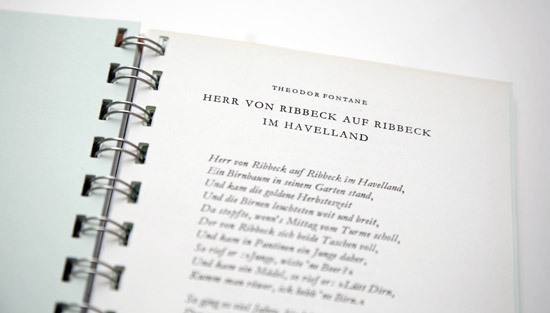 THEODOR FONTANE
HERR VON RIBBECK AUF RIBBECK
IM HAVELLAND
Herr von Ribbeck auf Ribbeck im Havelland,
Ein Birnbaum in seinem Garten stand,
Und kam die goldene Herbsteszeit
Und die Birnen leuchteten weit und breit,
Da stopfte, wenn's Mittag vom Turme scholl,
Der von Ribbeck sich beide Taschen voll,
Und kam in Pantinen ein Junge daher,
So rief er: »Junge, wiste 'ne Beer?«
Und kam ein Mädel, so rief er: »Lütt Dirn,
Kumm man röwer, ick hebb 'ne Birn.«
So ging es viel Jahre,